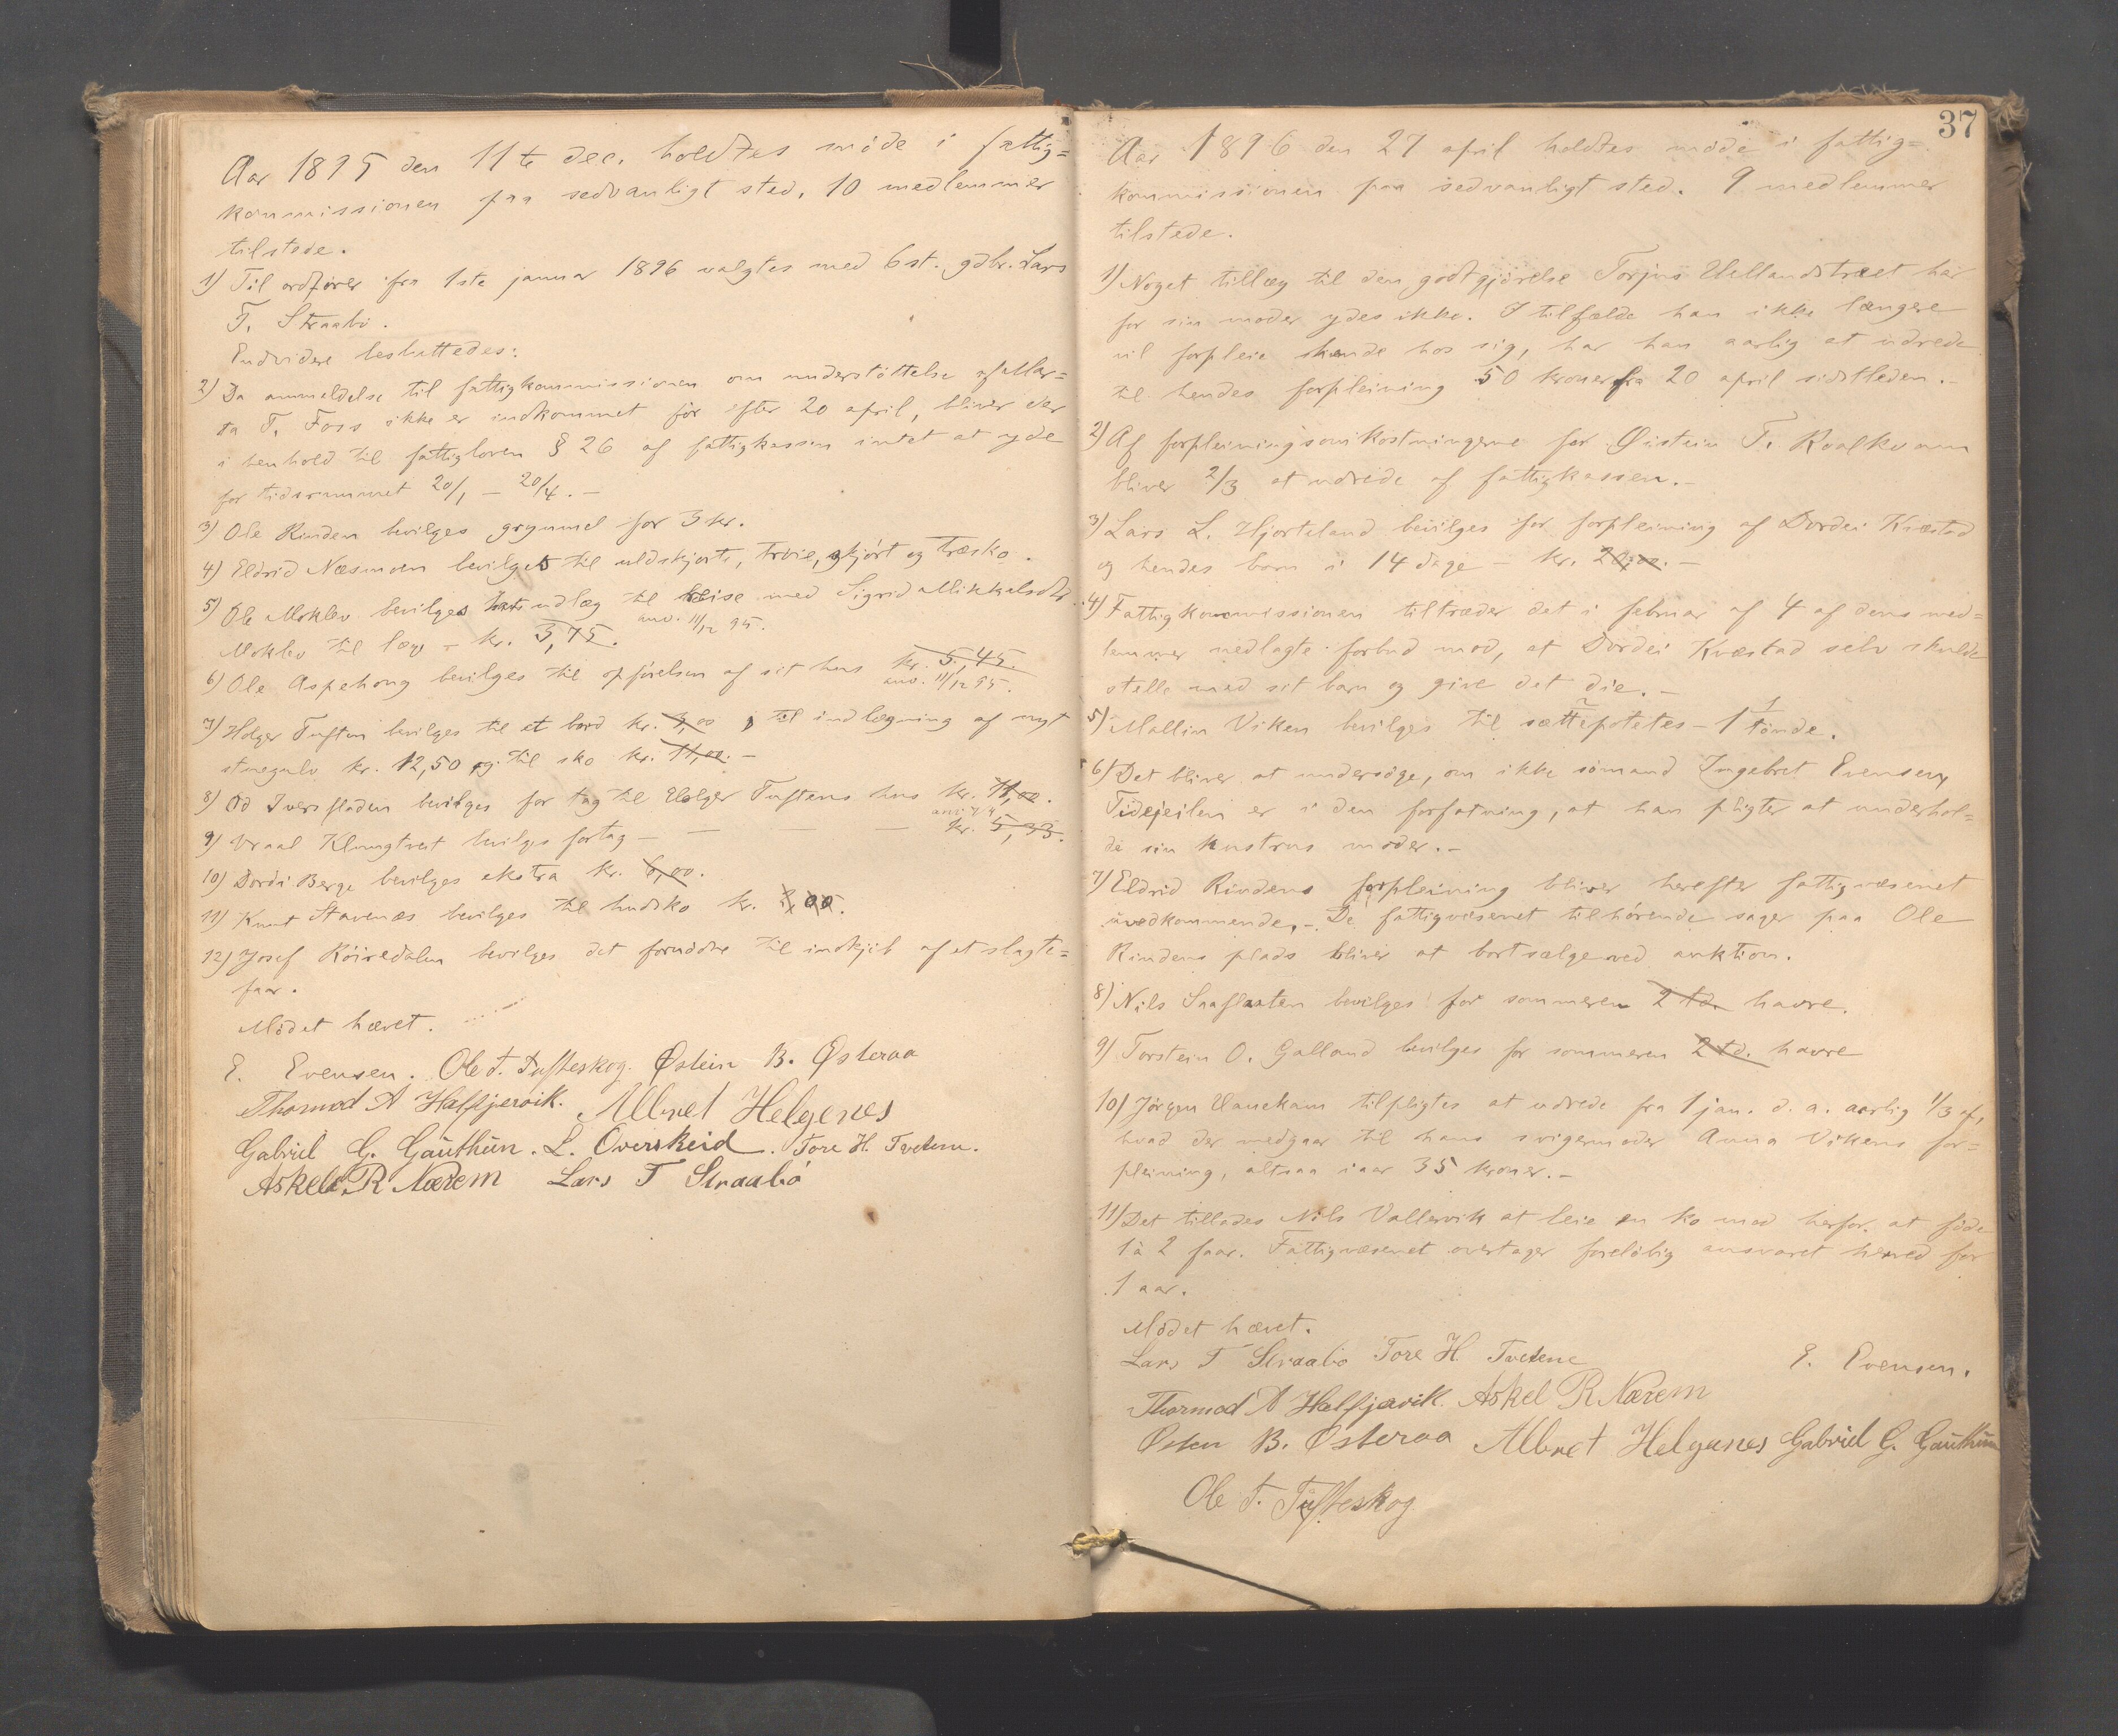 Aar 1895 den 11te dec. holdtes möde i fattig=
kommissionen paa sedvanligt sted. 10 medlemmer
tilstede.
1) Til ordförer fra 1ste januar 1896 valgtes med 6 st. gdbr. Lars
T. Straabö.
Endvidere besluttedes:
2) Da anmeldelse til fattigkommissionen om understöttelse af Mar=
ta T. Foss ikke er indkommet för efter 20 april, bliver der
i henhold til fattigloven § 26 af fattigkassen intet at yde
for tidsrummet 20/1 – 20/4. –
3) Ole Rinden bevilges grynmel for 3 kr.
4) Eldrid Næsmoen bevilges til uldskjorte, tröie, skjört og træsko.
5) Ole Moklev bevilges udlæg til reise med Sigrid Mikkelsdtr.
Moklev til læge – kr. 3,75. anv. 11/12 95.
6) Ole Aspehoug bevilges til opförelsen af sit hus kr. 5,45.
anv. 11/12 95.
7) Holger Tuften bevilges til et bord kr. 3,00, til indlægning af nyt
stuegulv kr. 12,50 og til sko kr. 11,00. –
8) Od Iversfladen bevilges for tag til Holger Tuftens hus kr. 11,00.
9) Vraal Klungtveit bevilges for tag – — — — kr. 5,33.
10) Dordi Berge bevilges ekstra kr. 6,00.
11) Knut Stavenæs bevilges til hudsko kr. 3,00.
12) Josef Röiredalen bevilges det fornödne til indkjöb af et slagte=
faar.
Mödet hævet.
E. Evensen. Ole T. Tufteskog. Östein B. Österaa
Thormod A Halfjervik. Albret Helgenes
Gabriel G. Gauthun. L. Overskeid. Tore H. Tveten.
Askel R Nærem Lars T Straabö
37
Aar 1896 den 27 april holdtes möde i fattig=
kommissionen paa sedvanligt sted. 9 medlemmer
tilstede.
1) Noget tillæg til den godtgjörelse Torjus Utlandstræet har
for sin moder ydes ikke. I tilfælde han ikke længere
vil forpleie hende hos sig, har han aarlig at udrede
til hendes forpleining 50 kroner fra 20 april sidstleden. –
2) Af forpleiningsomkostningerne for Öistein T. Kvalkvam
bliver 2/3 at udrede af fattigkassen. –
3) Lars L. Hjorteland bevilges for forpleining af Dordei Kvæstad
og hendes barn i 14 dage – kr. 20,00. –
4) Fattigkommissionen tiltræder det i februar af 4 af dens med=
lemmer nedlagte forbud mod, at Dordei Kvæstad selv skulde
stelle med sit barn og give det die. –
5) Mallin Viken bevilges til sættepotetes – 1 tönde.
6) Det bliver at undersöge, om ikke sömand Ingebret Evensen,
Tidejeilen er i den forfatning, at han pligter at underhol=
de sin kustrus moder. –
7) Eldrid Rindens forpleining bliver herefter fattigvæsenet
uvedkommende. – De fattigvæsenet tilhörende sager paa Ole
Rindens plads bliver at bortsælge ved auktion.
8) Nils Saaflaaten bevilges for sommeren 2 td. havre.
9) Torstein O. Galland bevilges for sommeren 2 td. havre
10) Jörgen Vauekam tilpligtes at udrede fra 1 jan. d. a. aarlig 1/3 af,
hvad der medgaar til hans svigermoder Anna Vikens for=
pleining, altsaa iaar 35 kroner. –
11) Det tillades Nils Vallervik at leie en ko mod herfor at föde
1 à 2 faar. Fattigvæsenet overtager forelöbig ansvaret herved for
1 aar.
Mödet hævet.
Lars T Straabö Tore H. Tvetene E. Evensen.
Thormod A Halfjervik. Askel R Nærem
Östen B. Österaa Albret Helgenes Gabriel G. Gauthun
Ole T. Tufteskog